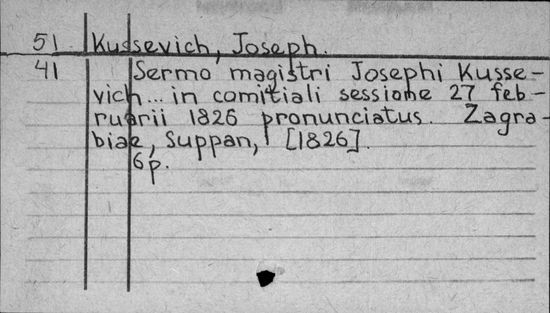 51 Kussevich, Joseph.
41 Sermo magistri Josephi Kusse-
vich... in comitiali sessione 27 feb-
ruarii 1826 pronunciatus. Zagra-
biae, Suppan, [1826].
6p.